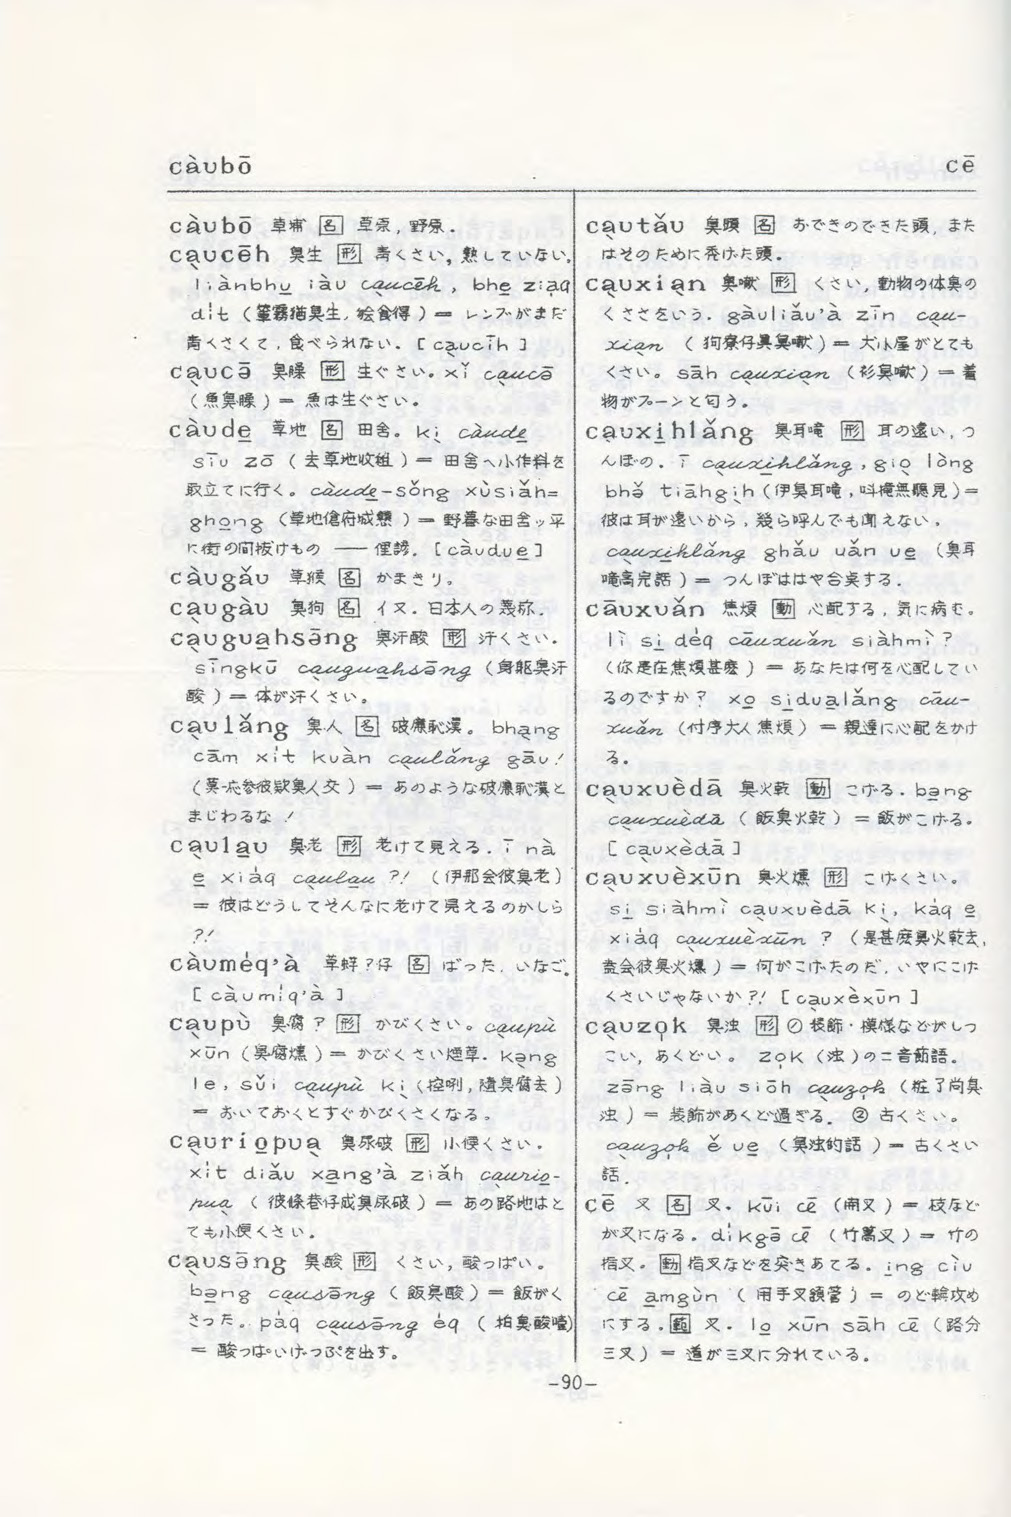 càubō
cē
càubō 草埔 [名] 草原，野原．
cạucēh 臭生 [形] 青くさい，熟していない。
liànbhu̲ iàu cạucēh, bhe̲ zia̲q
di̍t (蓮霧猶臭生，絵食得) ＝ レンブがまだ
青くさくて，食べられない．[ cạucīh ]
cạucə̄ 臭臊 [形] 生ぐさい。xǐ cạucə̄
(魚臭臊) ＝ 魚は生ぐさい。
càude̲ 草地 [名] 田舎。kị càude̲
sīu zō (去草地收租) ＝ 田舎へ小作料を
取立てに行く。càude̲-sǒng xùsiǎh=
gho̲ng (草地倯府城戇) ＝ 野暮な田舎ッ平
に街の間抜けもの ── 俚諺．[càudue̲]
càugǎu 草猴 [名] かまきり。
cạugàu 臭狗 [名] イヌ．日本人の蔑称．
cạugua̲hsə̄ng 臭汗酸 [形] 汗くさい．
sīngkū cạugua̲hsə̄ng (身軀臭汗
酸) ＝ 体が汗くさい。
cạulǎng 臭人 [名] 破廉恥漢。bha̲ng
cām xi̍t kuàn cạulǎng gāu!
(莫 参彼款臭人交) ＝ あのような破廉恥漢と
まじわるな！
cạula̲u 臭老 [形] 老けて見える．ī nà
e̲ xia̍q cạula̲u ?! (伊那会彼臭老)
＝ 彼はどうしてそんなに老けて見えるのかしら
?!
càume̍q'à 草蜢?仔 [名] ばった，いなご。
[ càumi̍q'à ]
cạupù 臭腐？ [形] かびくさい。cạupù
xūn (臭腐燻) ＝ かびくさい煙草．kạng
le, sǔi cạupù kị (控咧，隨臭腐去)
＝ おいておくとすぐかびくさくなる。
cạurio̲puạ 臭尿破 [形] 小便くさい．
xi̍t diǎu xa̲ng'à ziǎh cạurio̲-
puạ (彼條巷仔成臭尿破) ＝ あの路地はと
ても小便くさい．
cạusə̄ng 臭酸 [形] くさい，酸っぱい。
bə̲ng cạusə̄ng (飯臭酸) ＝ 飯がく
さった。páq cạusə̄ng éq (拍臭酸噎)
＝ 酸っぱいげっぷを出す。
cạutǎu 臭頭 [名] おできのできた頭，また
はそのために禿げた頭．
cạuxiạn 臭㗔 [形] くさい，動物の体臭の
くささをいう．gàuliǎu'à zīn cạu-
xiạn (狗寮仔真臭㗔) ＝ 犬小屋がとても
くさい。sāh cạuxiạn (衫臭㗔) ＝ 着
物がプーンと匂う。
cạuxi̲hlǎng 臭耳聾 [形] 耳の遠い，つ
んぼの．ī cạuxi̲hlǎng, giọ lòng
bhə̌ tiāhgịh (伊臭耳聾，叫攏無聽見) ＝
彼は耳が遠いから，幾ら呼んでも聞えない．
cạuxi̲hlǎng ghǎu uǎn ue̲ (臭耳
聾高完話) ＝ つんぼははや合点する．
cāuxuǎn 焦煩 [動] 心配する，気に病む。
lì si̲ de̍q cāuxuǎn siàhmì?
(你是在焦煩甚麼) ＝ あなたは何を心配してい
るのですか？ xo̲ si̲dua̲lǎng cāu-
xuǎn (付序大人焦煩) ＝ 親達に心配をかけ
る。
cạuxuèdā 臭火乾 [動] こげる．bə̲ng
cạuxuèdā (飯臭火乾) ＝ 飯がこげる。
[ cạuxèdā ]
cạuxuèxūn 臭火燻 [形] こげくさい。
si̲ siàhmì cạuxuèdā kị, káq e̲
xia̍q cạuxuèxūn ? (是甚麼臭火乾去，
盍会彼臭火燻) ＝ 何がこげたのだ，いやにこげ
くさいじゃないか?! [cạuxèxūn]
cạuzo̍k 臭浊 [形] ① 装飾・模様などがしつ
こい，あくどい。zo̍k (浊)の二音節語。
zə̄ng liàu siōh cạuzo̍k (粧了尚臭
浊) ＝ 装飾があくど過ぎる．② 古くさい。
cạuzo̍k ě ue̲ (臭浊的話) ＝ 古くさい
話．
cē 叉 [名] 叉．kūi cē (開叉) ＝ 枝など
が叉になる。díkgə cē (竹篙叉) ＝ 竹の
指叉。[動] 指叉などを突きあてる．i̲ng cìu
cē a̲mgùn (用手叉頷管) ＝ のど輪攻め
にする．[範] 叉．lo̲ xūn sāh cē (路分
三叉) ＝ 道が三叉に分れている。
-90-